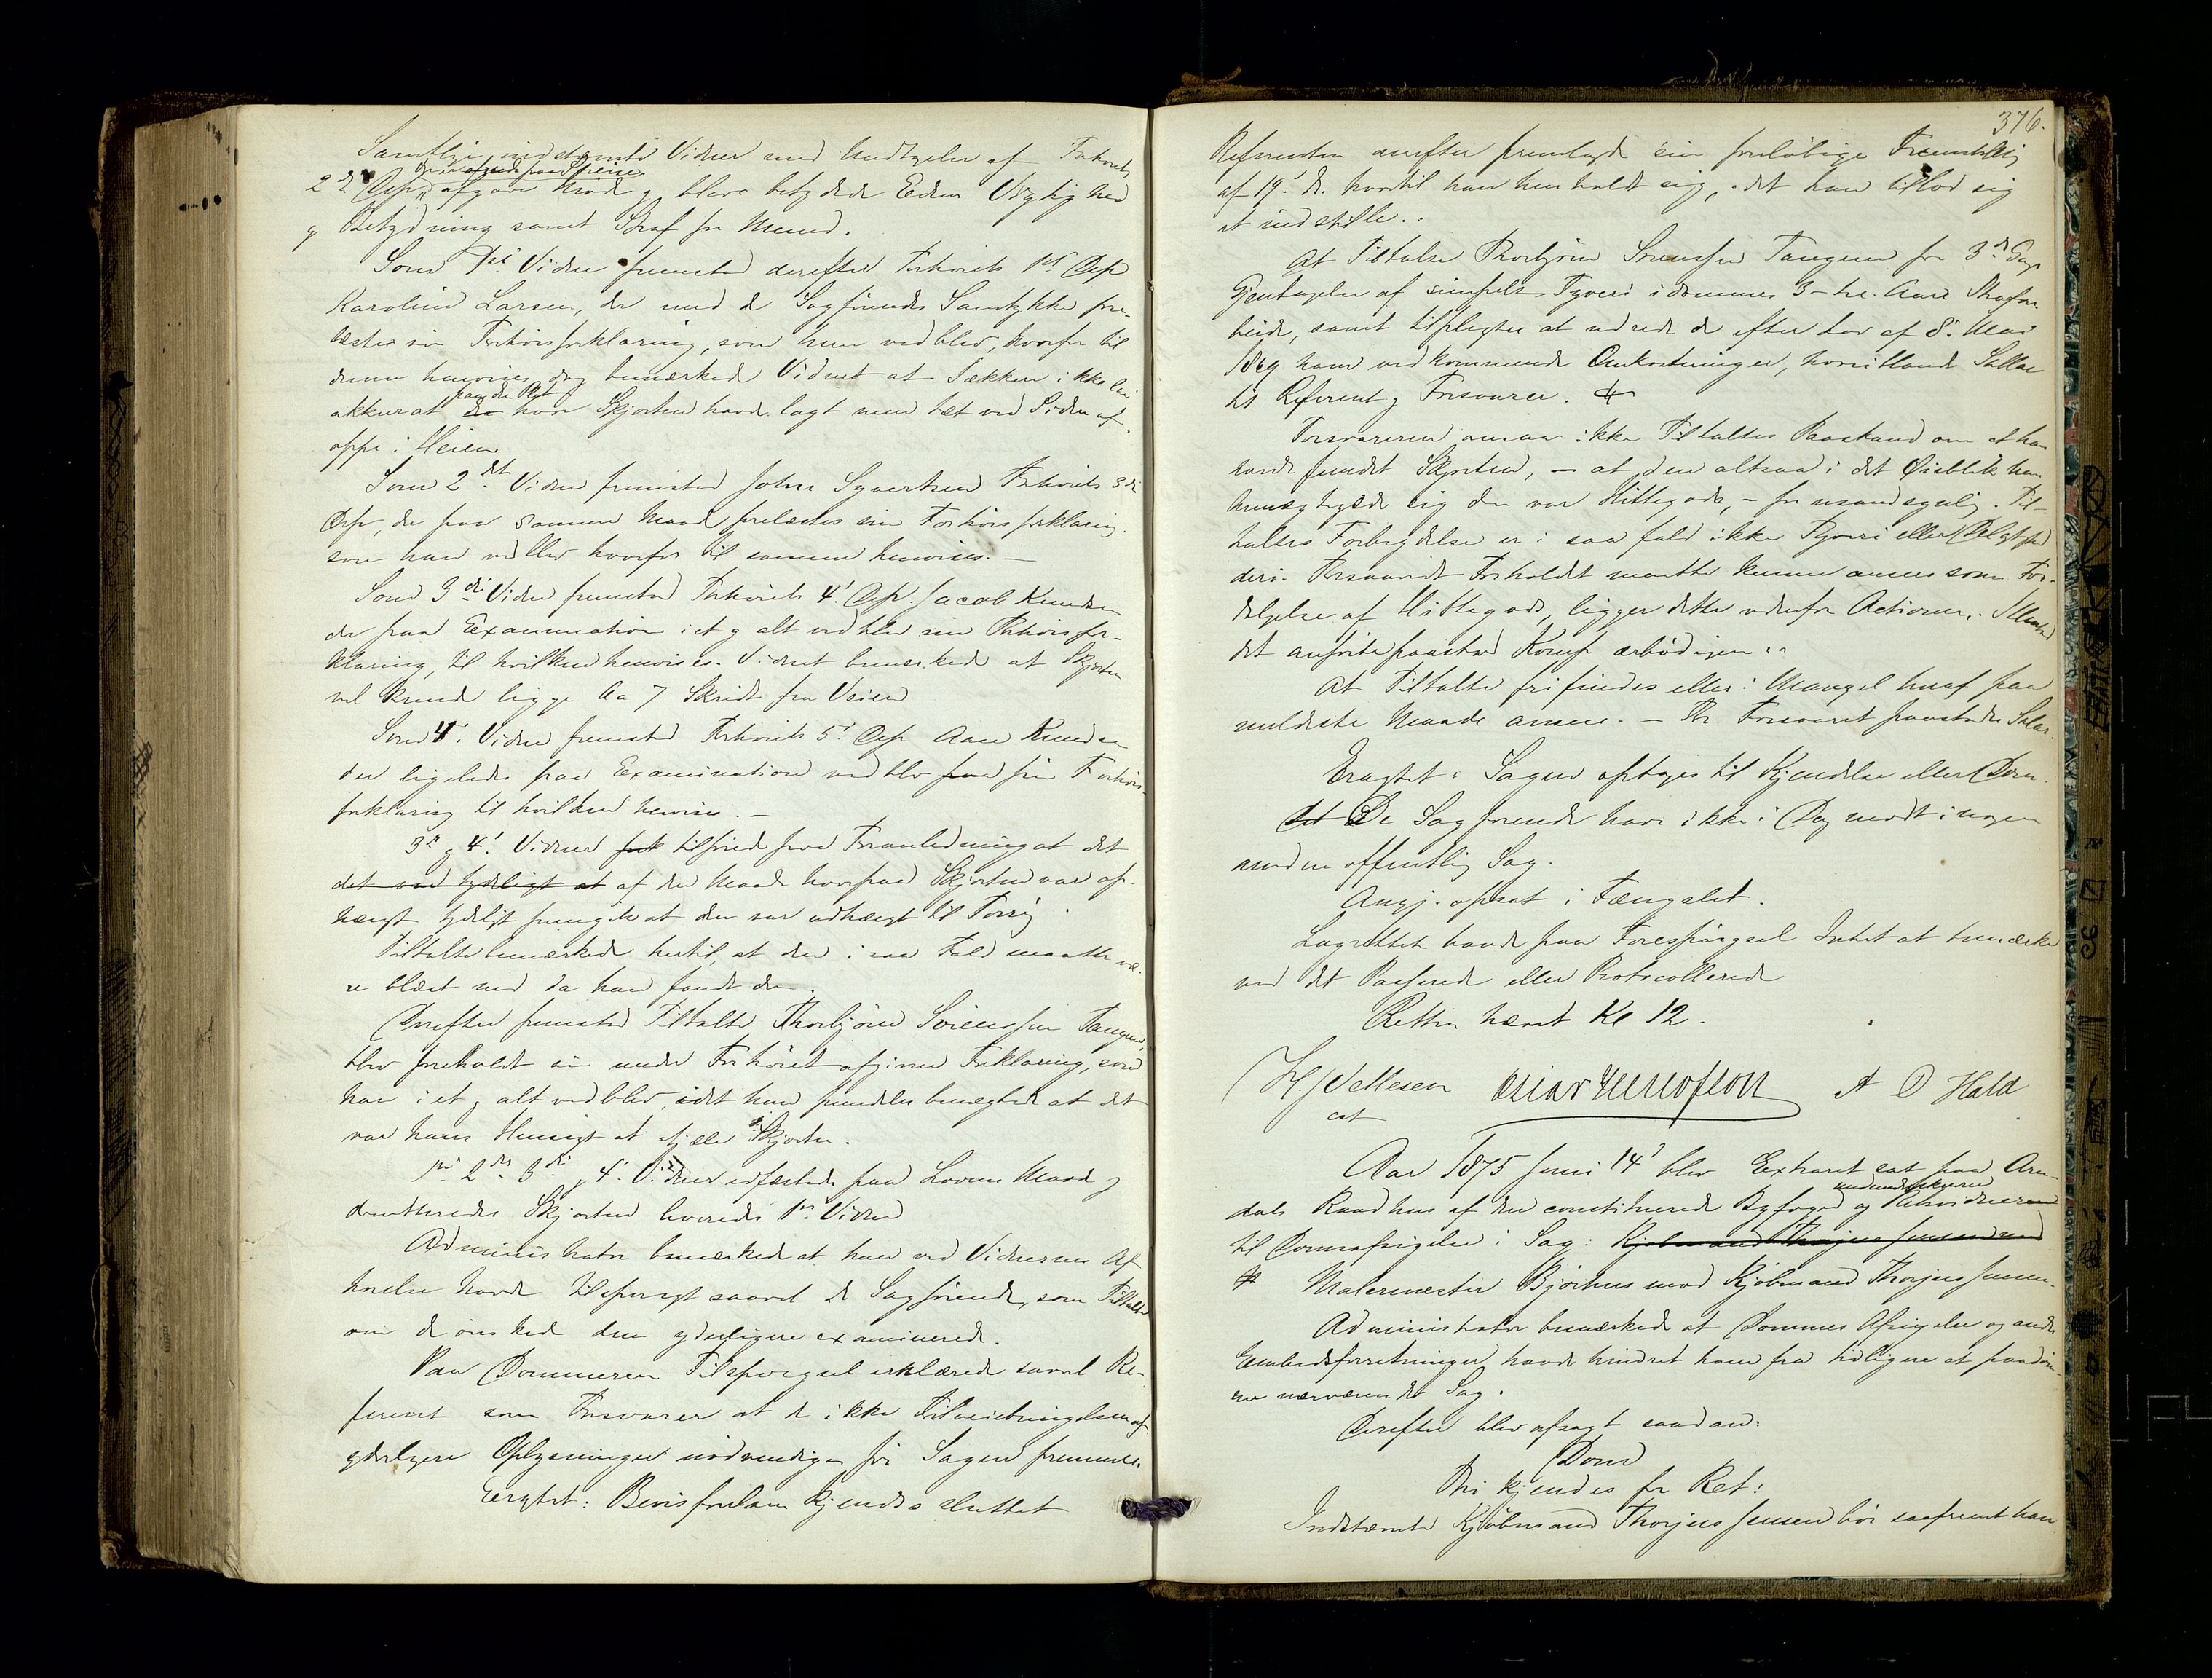 Samtlige indstevnte Vidner med Undtagelse af Forhørets
der er afreist paa Reise
2de Dep. afgav Møde og bleve betydede Edens Vigtighed
og Betydning samt Straf for Meened.
Som 1ste Vidne fremstod derefter Forhørets 1ste Dep
Karoline Larsen, der med de Sagførendes Samtykke fore-
læstes sin Forhørsforklaring, som hun vedblev, hvorfor til
denne henvises dog bemærkede Vidnet at Sækken ikke laa
paa den Plet
akkurat der hvor Skjorten havde lagt men tæt ved Siden af
oppe i Heien
Som 2det Vidne fremstod Johne Syvertsen Forhørets 3die
Dep, der paa samme Maade forelæstes sin Forhørsforklaring
som han vedblev hvorfor til samme henvises. —
Som 3die Vidne fremstod Forhørets 4' Dep. Jacob Knudsen
der paa Examination i et og alt vedblev sin Forhørsfor-
klaring, til hvilken henvises. Vidnet bemærkede at Skjorten
vel kunde ligge 6 a 7 Skridt fra Veien
Som 4' Vidne fremstod Forhørets 5' Dep Aase Knudsen
der ligeledes paa Examination vedblev sin Forhørs-
forklaring til hvilken henvises. —
3die og 4' Vidner tilføied paa Foranledning at det
det var tydeligt at af den Maade hvorpaa Skjorten var op-
hængt tydeligt fremgik at den var udhængt til Tørring.
Tiltalte bemærkede hertil, at den i saa Fald maatte væ-
re blæst ned da han fandt den.
Derefter fremstod Tiltalte Thorbjørn Sørensen Tangen,
blev foreholdt sin under Forhøret afgivne Forklaring, som
han i et og alt vedblev, idet han fremdeles benægtede at det
var hans Hensigt at stjæle Skjorten.
1ste 2det 3die og 4' Vidner edfæstedes paa Lovens Maade og
dimitteredes Skjorten leveredes 1ste Vidne
Administrator bemærkede at han ved Vidnernes Af-
hørelse havde tilspurgt saavel de Sagførende, som Tiltalte
om de ønskede dem yderligere examinerede.
Paa Dommeren Tilspørgsel erklærede saavel Re-
ferent som Forsvarer at de ikke Tilveiebringelsen af
yderligere Oplysninger nødvendige før Sagen fremmes.
Eragtet: Bevisførelsen kjendes sluttet
376.
Referenten derefter fremlagde sin foreløbige Fremstilling
af 19' ds. hvortil han henholdt sig, idet han tillod sig
at indstille..
At Tiltalte Thorbjørn Sørensen Tangen for 3die Gangs
Gjentagelse af simpelt Tyveri idømmes 3-tre-Aars Strafar-
beide, samt tilpligtes at udrede de efter Lov af 8' Mai
1869 ham vedkommende Omkostninger, hvoriblandt Sallær
til Referent og Forsvarer.
Forsvareren ansaa ikke Tiltaltes Paastand om at han
havde fundet Skjorten, — at den altsaa i det Øieblik han
bemægtigede sig den var Hittegods, — for usandsynlig. Til-
taltes Forbrydelse er i saa fald ikke Tyveri eller
deri. Forsaavidt Forholdet maatte kunne ansees som For-
dølgelse af Hittegods, ligger dette udenfor Actionen. I Henhold
det anførte paastod Komp ærbødigen..
At Tiltalte frifindes eller i Mangel heraf paa
mildeste Maade ansees. — For Forsvaret paastodes Salær.
Eragtet: Sagen optages til Kjendelse eller Dom.
De Sagførende have ikke i Dag mødt i nogen
anden offentlig Sag.
Angj. opsat i Fængslet.
Lagrettet havde paa Forespørgsel Intet at bemærke
ved det Passerede eller Protocollerede
Retten hævet Kl 12.
H J Ellesen A O Hald
cst
Aar 1875 Juni 14' blev Extraret sat paa Aren-
undertegnede
dals Raadhus af den constituerede Byfoged og Retsvidnerne
til Domsafsigelse i Sag: Kjøbmand Thorjus Jensen mod
Malermester Bjørhus mod Kjøbmand Thorjus Jensen.
Administrator bemærkede at Dommes Afsigelse og andre
Embedsforretninger havde hindret ham fra tidligere at paadøm-
me nærværende Sag.
Derefter blev afsagt saadan:
Dom
Thi kjendes for Ret:
Indstævnte Kjøbmand Thorjus Jensen bør saafremt han